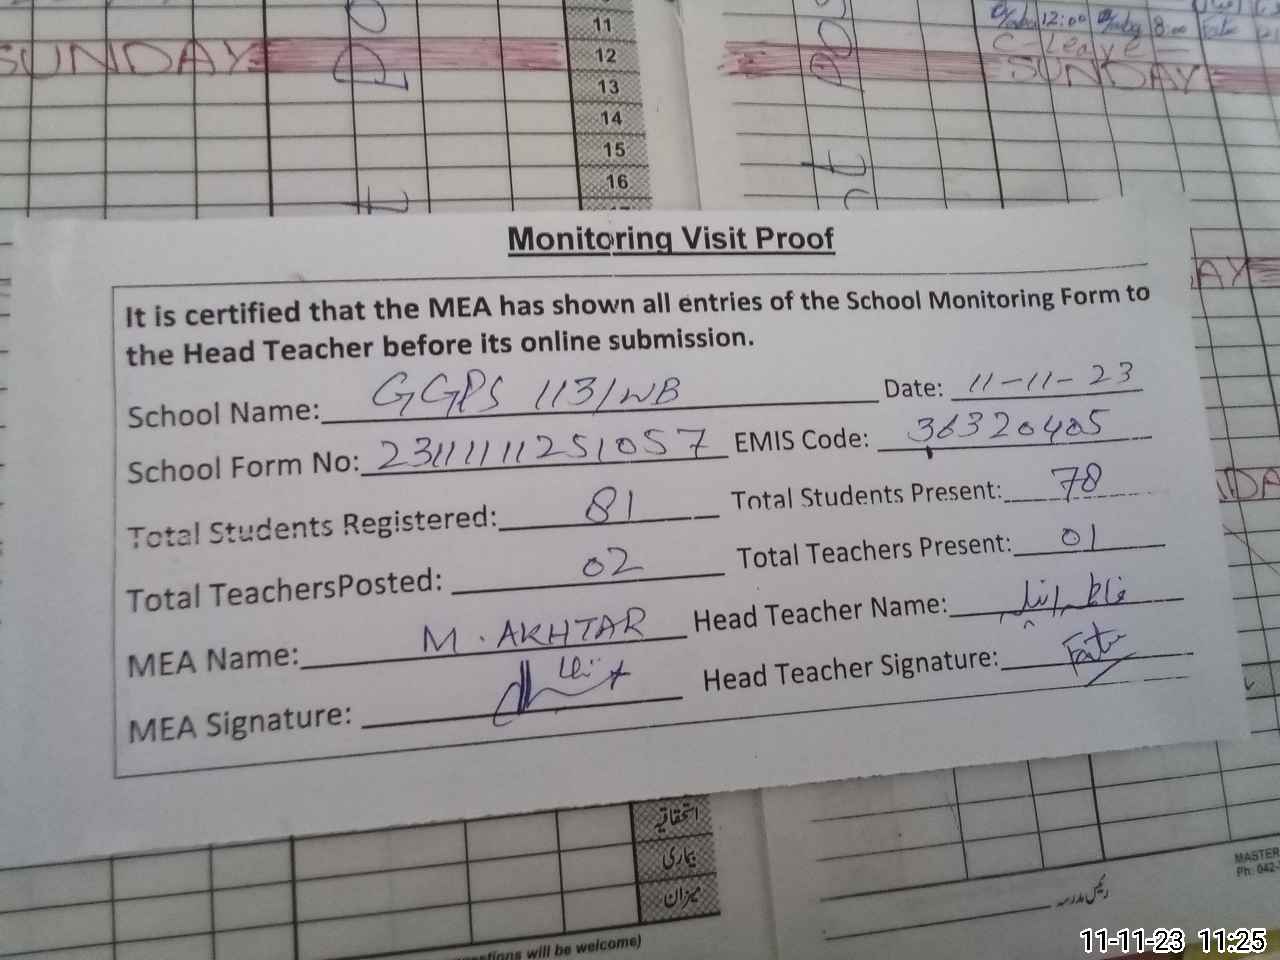 11
12:00 8:00
C-Leave
SUNDAY 12 SUNDAY
13
14
15
16
Monitoring Visit Proof
It is certified that the MEA has shown all entries of the School Monitoring Form to
the Head Teacher before its online submission.
School Name: GGPS 113/WB Date: 11-11-23
School Form No: 2311111251057 EMIS Code: 36320405
Total Students Registered: 81 Total Students Present: 78
Total TeachersPosted: 02 Total Teachers Present: 01
MEA Name: M. AKHTAR Head Teacher Name:
MEA Signature: Head Teacher Signature:
استحقاقیہ
بیماری
میزان
رئیس مدرسہ
MASTER
Ph: 042-
will be welcome)
11-11-23 11:25